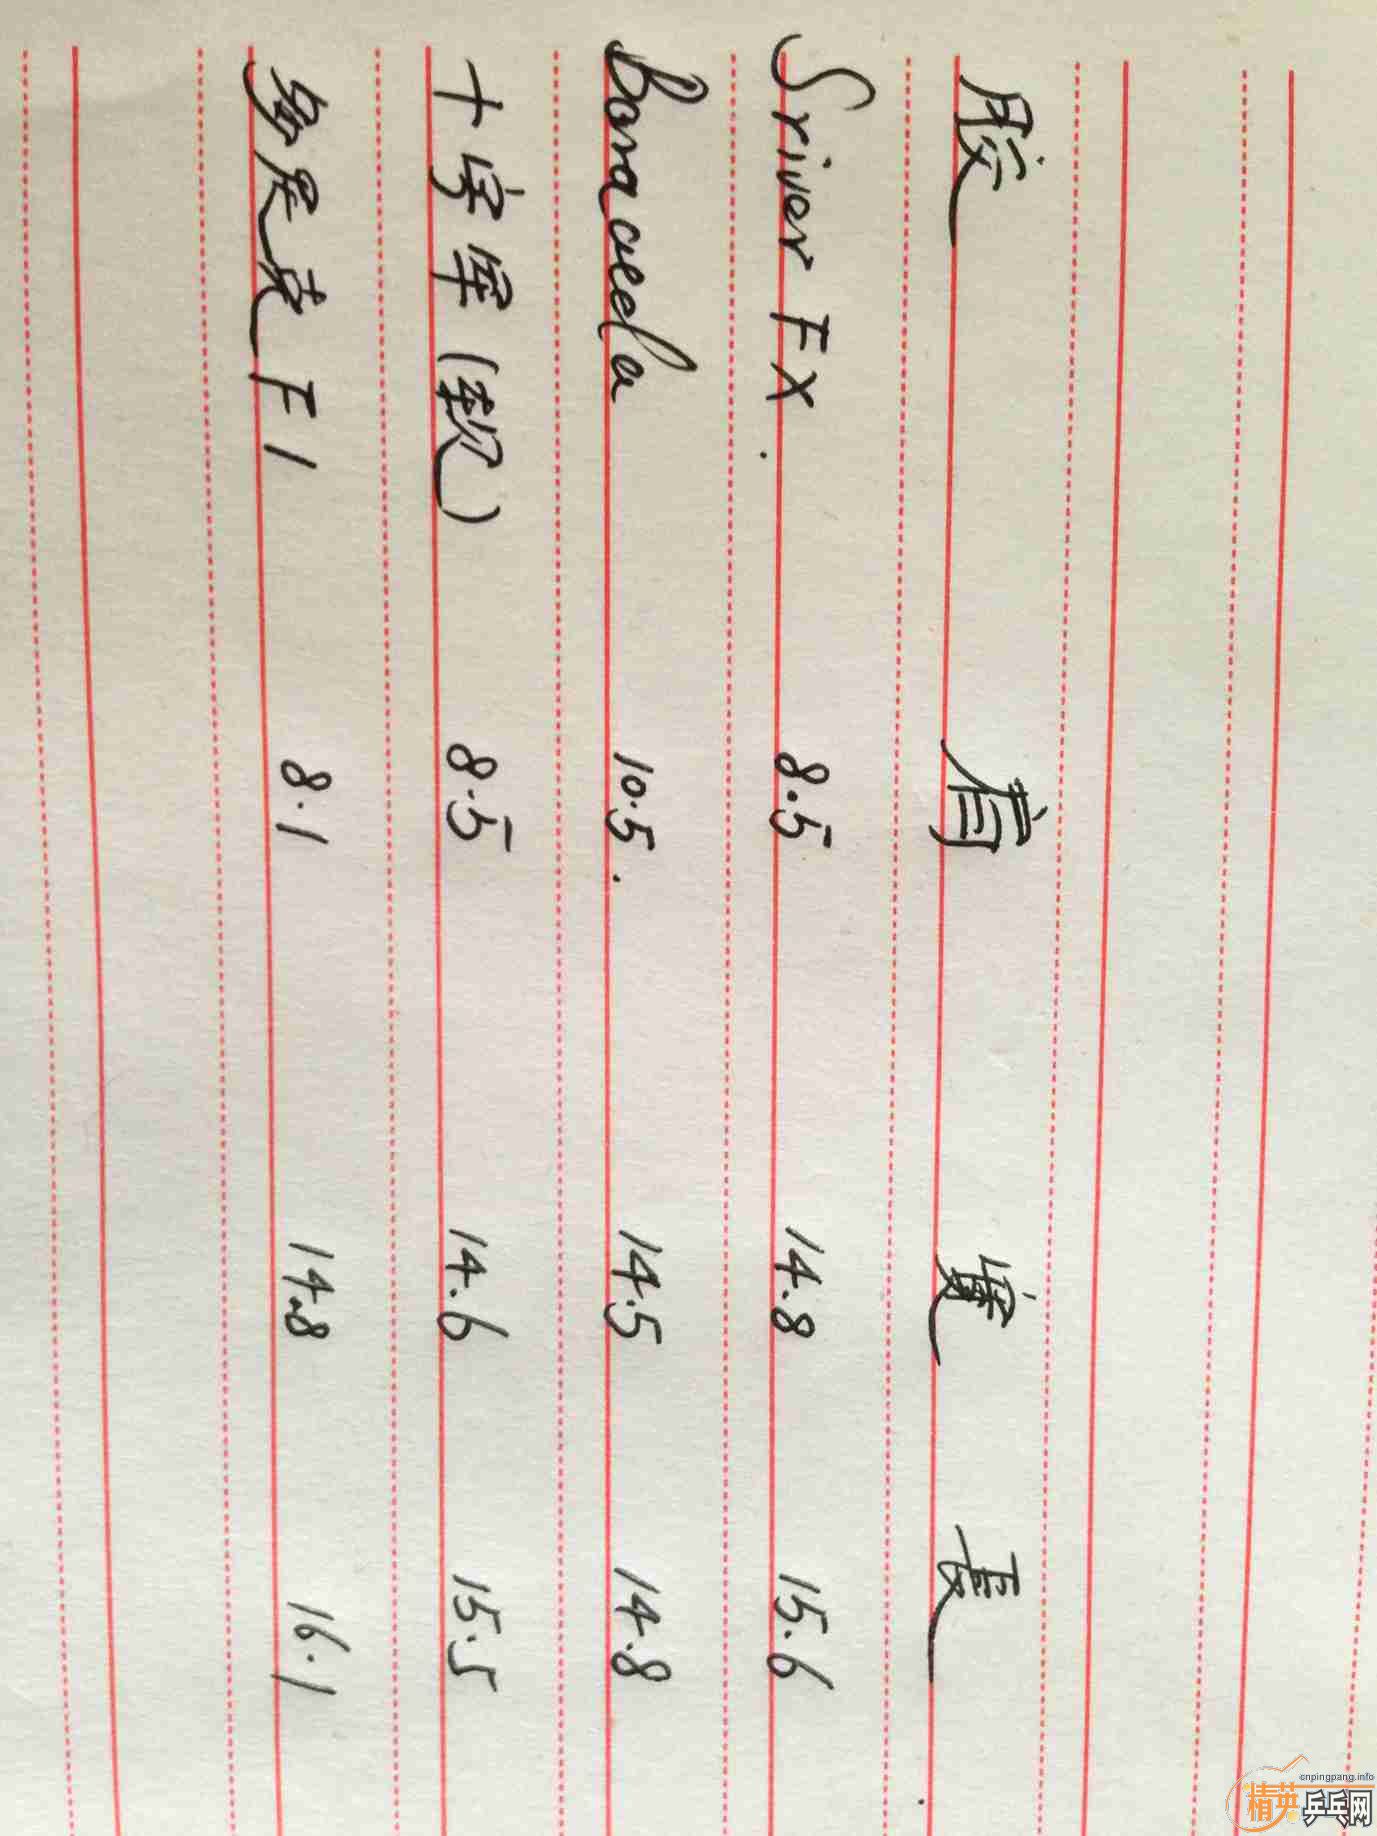 胶 肩 宽 长
Sriver FX 8.5 14.8 15.6
Boracella 10.5. 14.5 14.8
十字军(软) 8.5 14.6 15.5
多尼克F1 8.1 14.8 16.1
cnpingpang.info
精英乒乓网